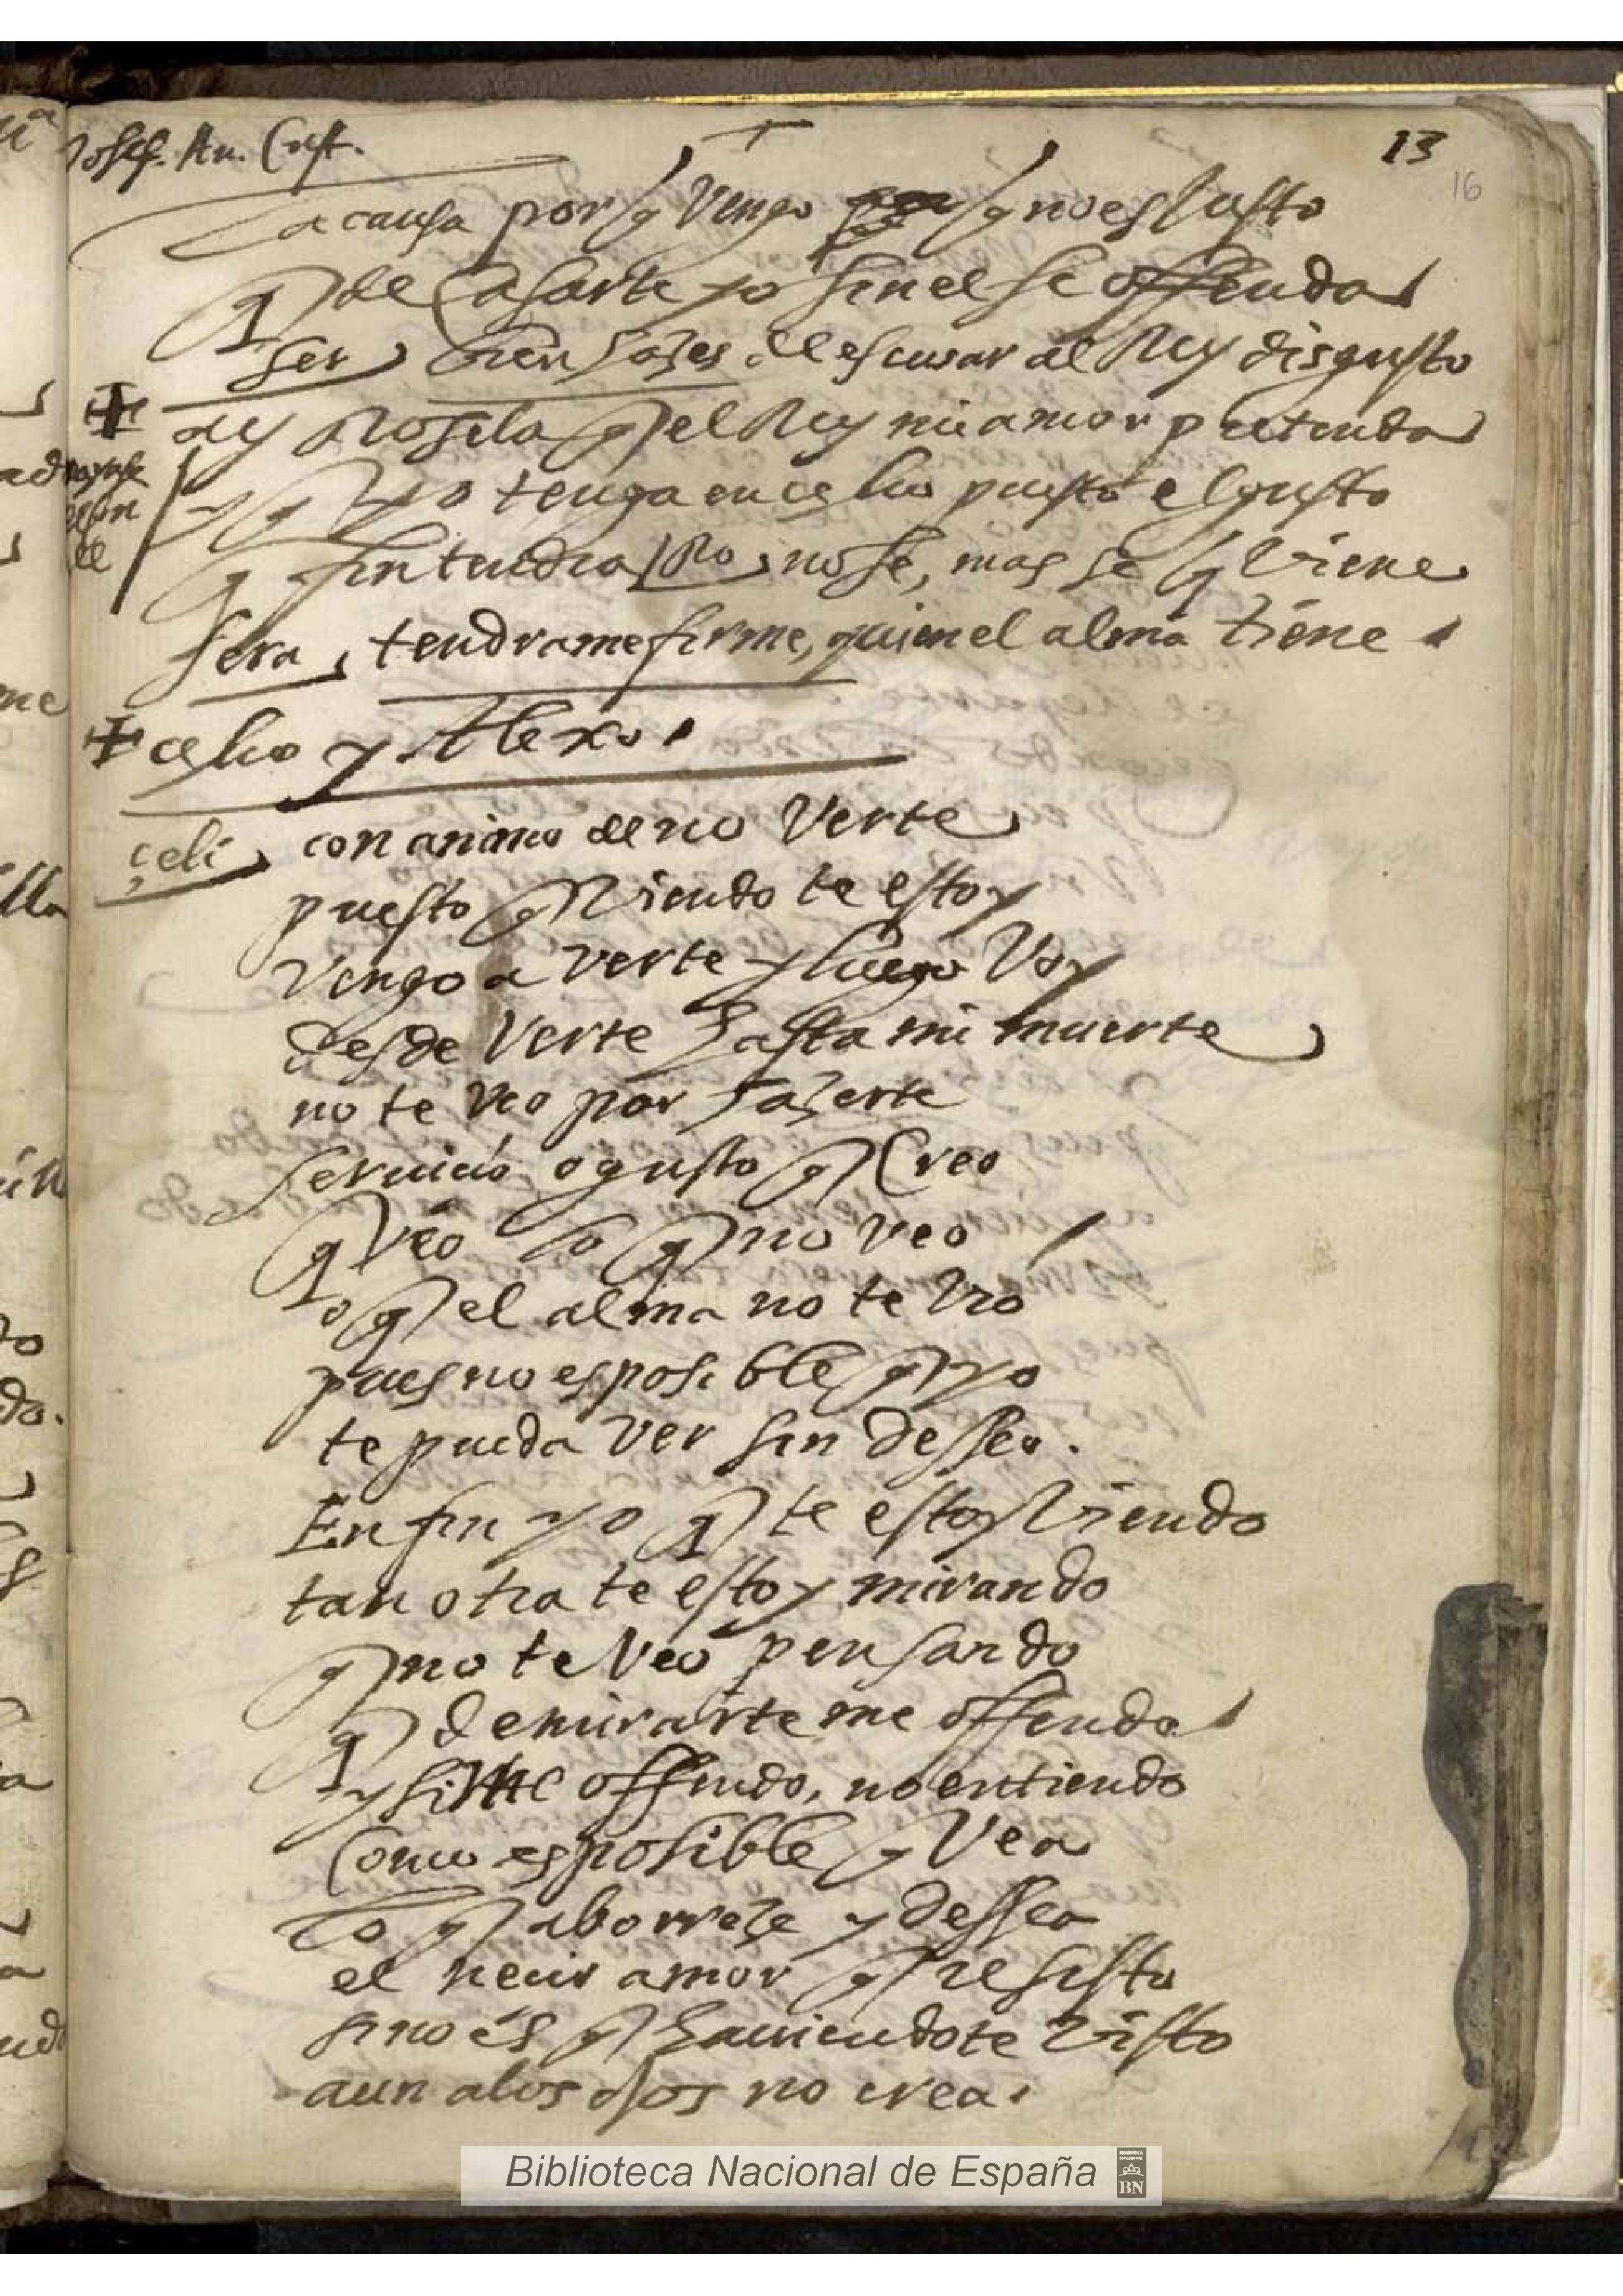 Josef. An. Cust.
13
16
La causa por q Vengo q no es Justo
q de Casarte yo sin el se offenda
Ser) bien hazes. de escusar al Rey disgusto
ay Rosela q el Rey mi amor pretenda
y q yo tenga en celio puesto el gusto
q fin tendra / Ro) no se, mas se q Viene
sera, tendrame firme, quien el alma tiene
celio y Alexo.
celi) con animo de no Verte
puesto q Viendo te estoy
Vengo a verte y luego Voy
desde Verte hasta mi muerte
no te veo por hazerte
seruicio o gusto q Creo
q veo lo q no veo
o q el alma no te vio
pues no es posible q yo
te pueda ver sin desseo.
En fin yo q te estoy Viendo
tan otra te estoy mirando
q no te Veo pensando
q de mirarte me offendo
y si me offendo, no entiendo
Como es posible q Vea
lo q aborreze y dessea
el necio amor q resisto
sino es q hauiendote Visto
aun a los ojos no crea.
Biblioteca Nacional de España
BN